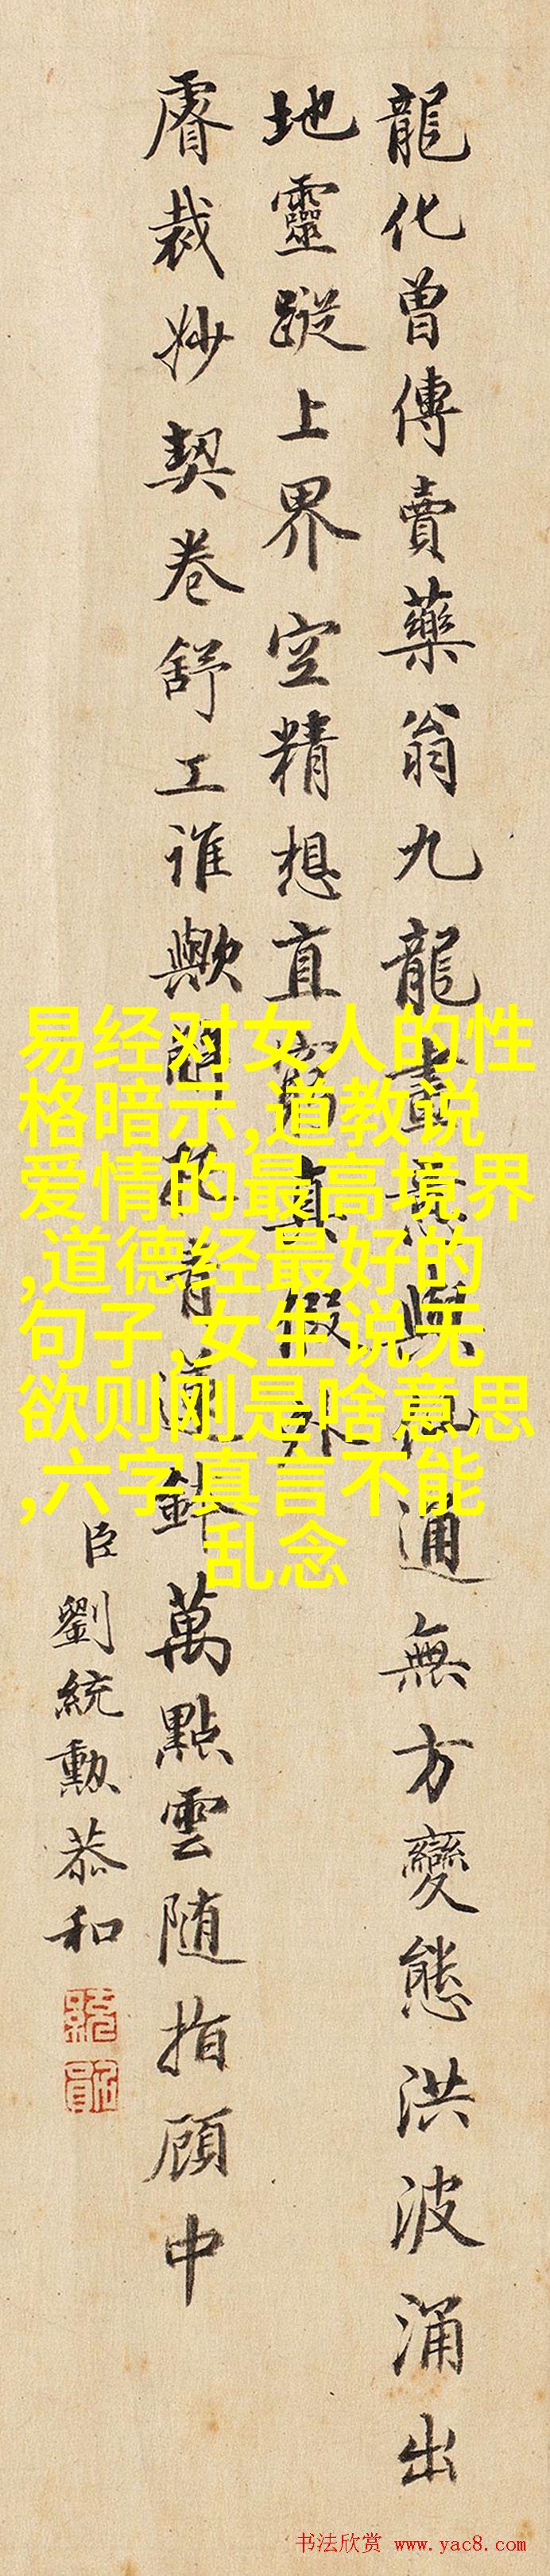 龍化曾傳賣藥翁九龍畫與通無方變態洪波涌出
地靈蹤上界空精想直窮真假外
睿裁妙契卷舒工誰歟青蓮鉢萬點雲随指顧中
臣劉統勳恭和
易经对女人的性
格暗示,道教说
爱情的最高境界
,道德经最好的
句子,女生说无
欲则刚是啥意思
,六字真言不能
乱念
书法欣赏 www.yac8.com